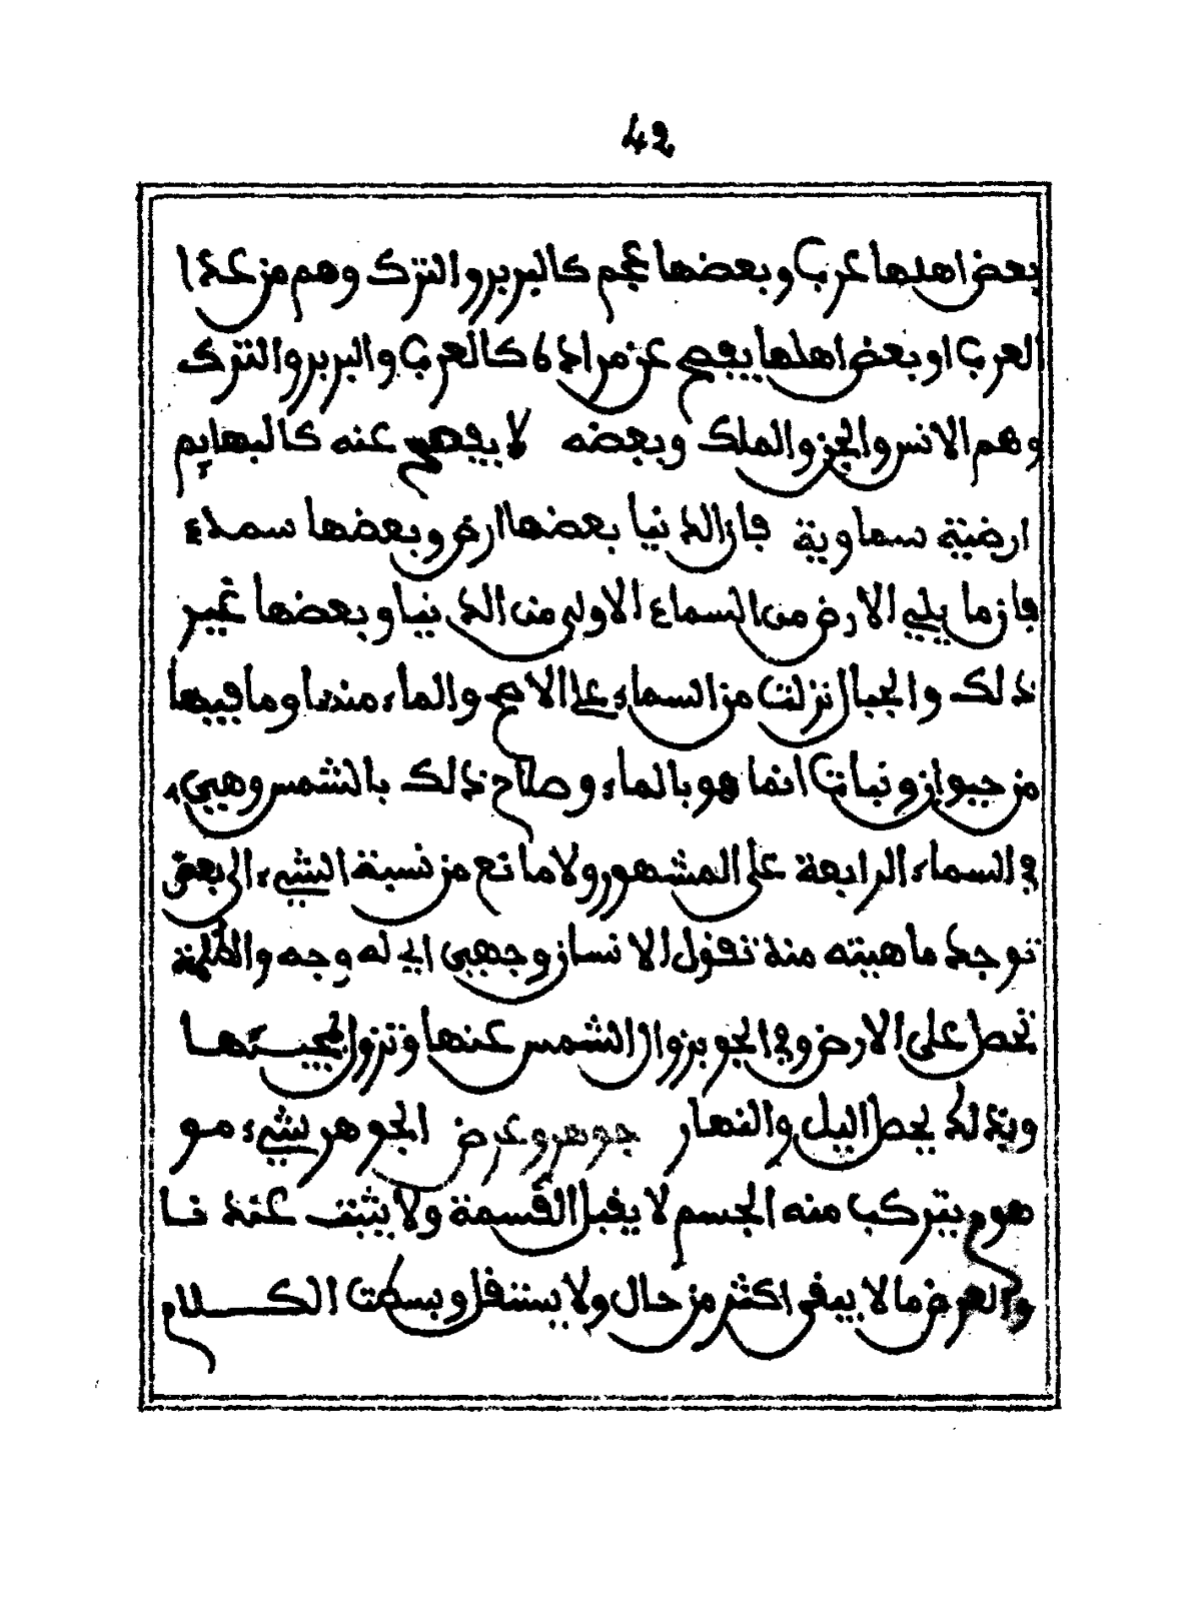 42
بعض اهلها عرب وبعضها عجم كالبربر والترك وهم من عدا
العرب او بعض اهلها يفصح عن مراده كالعرب والبربر والترك
وهم الانس والجن والملك وبعضه لا يفصح عنه كالبهايم
ارضية سماوية فان الدنيا بعضها ارض وبعضها سماء
فان ما يلي الارض من السماء الاولى من الدنيا وبعضها غير
ذلك والجبال نزلت من السماء على الاصح والماء منها وما فيها
من حيوان ونبات انما هو بالماء وصلاح ذلك بالشمس وهي
في السماء الرابعة على المشهور ولا مانع من نسبة الشيء الى بعض
توجد ماهيته منه تقول الانسان وجهي اي له وجه والظلمة
تحصل على الارض وفي الجو بزوال الشمس عنها وتزول بمجيئها
وبذلك يحصل اليل والنهار جوهر وعرض الجوهر شيء هو
هو يتركب منه الجسم لا يقبل القسمة ولا يثبت عندنا
والعرض ما لا يبقى اكثر من حال ولا يستقل وبسطت الكلام